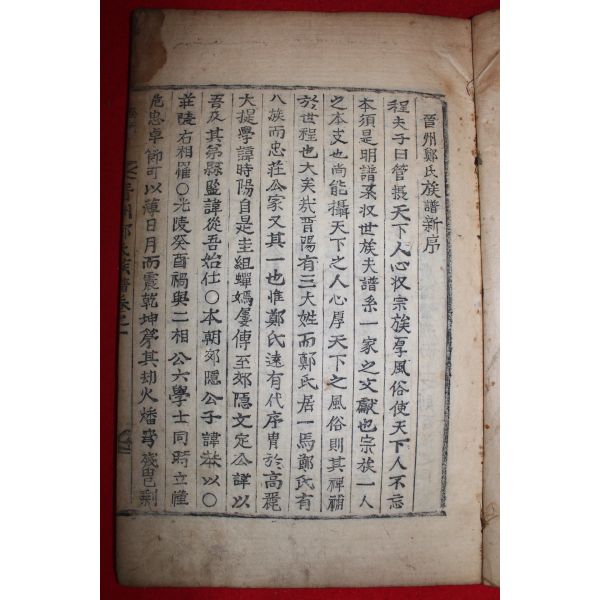 晉州鄭氏族譜新序
程夫子曰管攝天下人心收宗族厚風俗使天下人不忘
本須是明譜系收世族夫譜系一家之文獻也宗族一人
之本支也尚能攝天下之人心厚天下之風俗則其裨補
於世程也大矣哉晋陽有三大姓而鄭氏居一焉鄭氏有
八族而忠莊公家又其一也惟鄭氏遠有代序冑於高麗
大提學諱時陽自是圭組蟬嫣屢傳至郊隱文定公諱以
吾及其弟縣監諱從吾始仕○本朝郊隱公子諱苯以○
莊陵右相罹○光陵癸酉禍與二相公六學士同時立慬
危忠卓節可以薄日月而震乾坤矣其劫火燔 殘毘剩
晋州鄭氏族譜卷之一